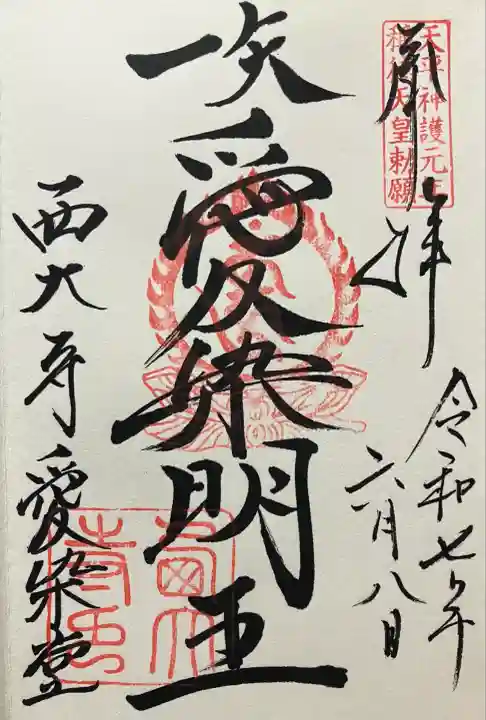 稱徳天皇勅願
天平神護元年
奉拝
令和七年
六月八日
一矢
愛染明王
西大寺愛染堂
西大
寺印